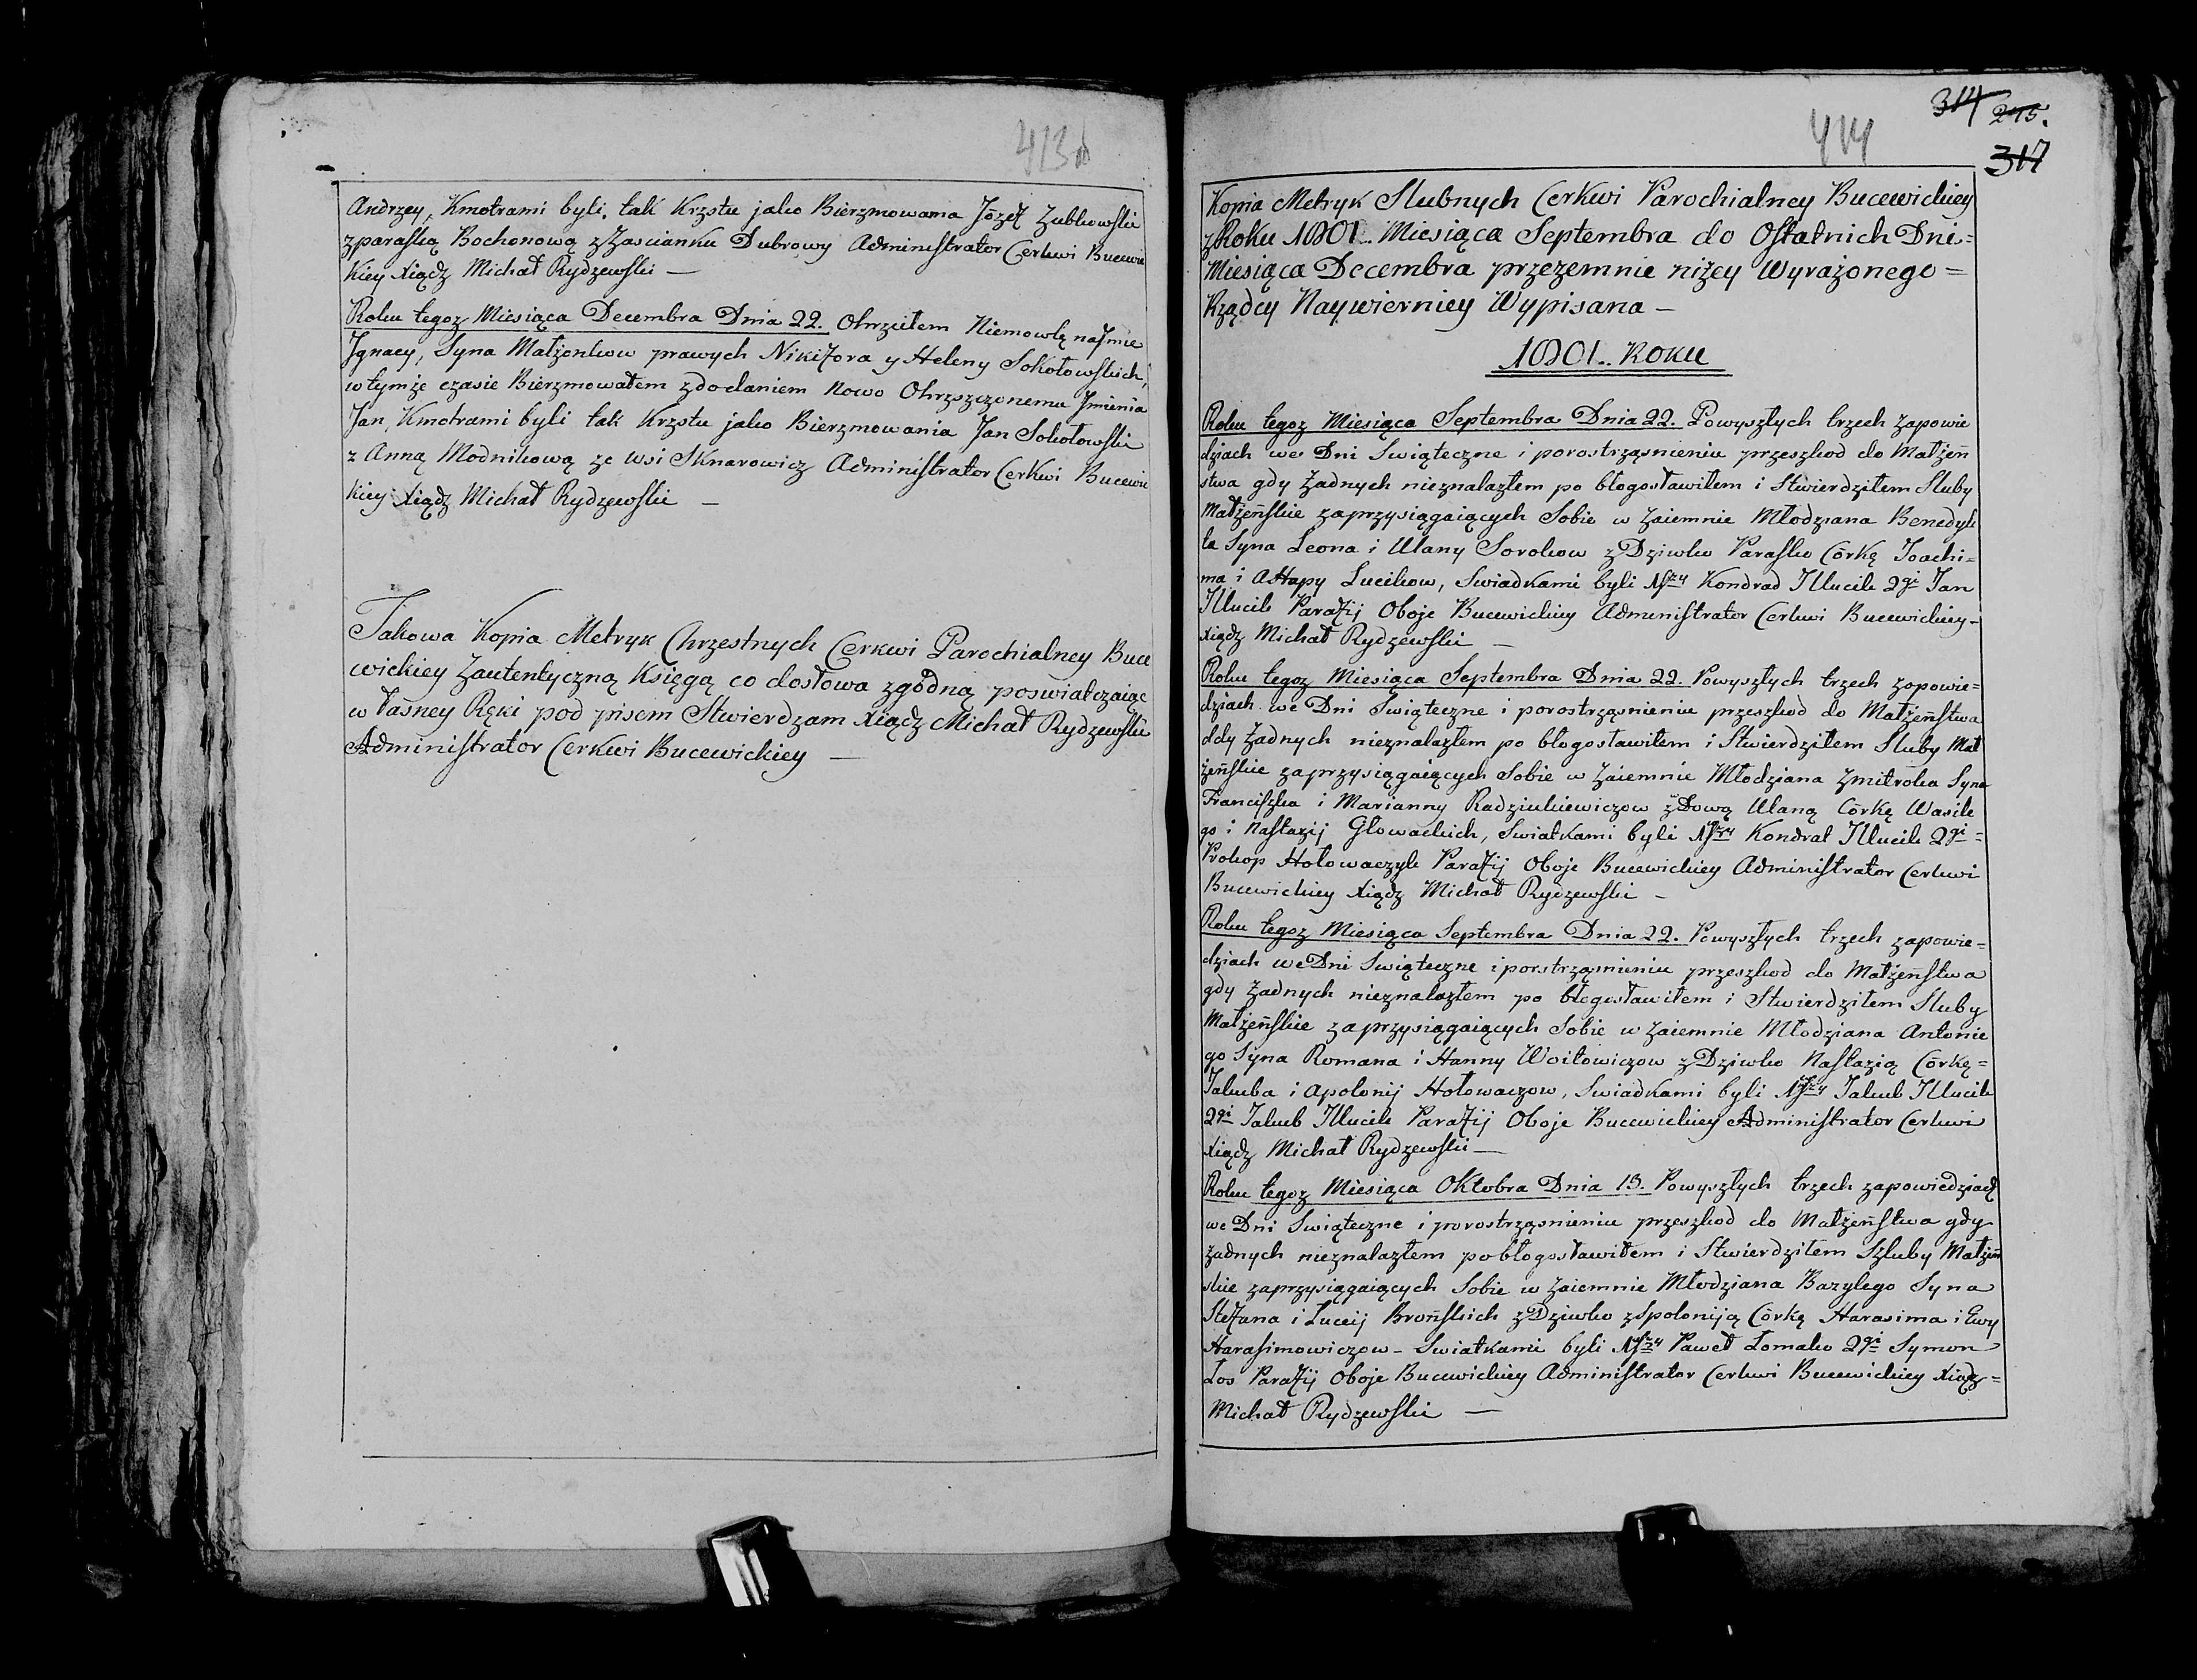 413
Andrzey, Kmotrami byli, tak Krzstu jako Bierzmowama Józef Zubkowski
zparaską Bochonową zZascianku Dubrowy Administrator Cerkwi Bucewic
kiey Xiądz Michał Rydzewski —
Roku tegoz Miesiąca Decembra Dnia 22. Ohrzciłem Niemowlę naJmie
Jgnacy, Syna Małżonkow prawych Nikifora y Heleny Sokołowskich,
wtymże czasie Bierzmowałem zdodaniem nowo Ohrzszczonemu Jmienia
Jan, Kmotrami byli tak Krzstu jako Bierzmowania Jan Sokołowski
z Anną Modnikową ze Wsi Sknarowicz Administrator Cerkwi Bucewic
kiey Xiądz Michał Rydzewski —
Takowa Kopia Metryk Chrzestnych Cerkwi Parochialney Buce
wickiey Zautentyczną Księgą co dosłowa zgodną poswiatczaiąc
własney Ręki pod pisem Stwierdzam Xiądz Michał Rydzewski
Administrator Cerkwi Bucewickiey —
414
314 275.
317
Kopia Metryk Slubnych Cerkwi Parochialney Bucewickiey
zRoku 1801.. Miesiąca Septembra do Ostatnich Dni=
Miesiąca Decembra przezemnie niżey Wyrażonego=
Rządcy Naywierniey Wypisana —
1801.. Roku
Roku tegoz Miesiąca Septembra Dnia 22. Powyszłych trzech zapowie
dziach we Dni Swiąteczne i porostrząsnieniu przeszkod do Małżeń
stwa gdy Żadnych nieznalazłem po błogosławiłem i Stwierdziłem Sluby
Małżeńskie zaprzysiągaiących Sobie w zaiemnie Młodziana Benedyk
ta Syna Leona i Ulany Sorokow zDziwko Parasko Córkę Joachi=
ma i Ahapy Lucikow, Swiadkami byli 1szy Kondrad Jllucik 2gi Jan
Jllucik Parafij Oboje Bucewickiey Administrator Cerkwi Bucewickiey-
Xiądz Michał Rydzewski —
Roku tegoz Miesiąca Septembra Dnia 22. Powyszłych trzech zopowie=
dziach we Dni Swiąteczne i porostrząsnieniu przeszkod do Małżeństwa
ddy Żadnych nieznalazłem po błogosławiłem i Stwierdziłem Sluby Mał
żeńskie zaprzysiągaiących Sobie w zaiemnie Młodziana Zmitroka Syna
Franciszka i Marianny Radziukiewiczow zDową Ulaną Córkę Wasile
go i Nastazij Głowackich, Swiatkami byli 1szy Kondrat Jllucik 2gi=
Prokop Hołowaczyk Parafij Oboje Bucewickiey Administrator Cerkwi
Bucewickiey Xiądz Michał Rydzewski —
Roku tegoz Miesiąca Septembra Dnia 22. Powyszłych trzech zapowie=
dziach we Dni Swiąteczne i porstrząsnieniu przeszkod do Małżeństwa
gdy Żadnych nieznalazłem po błogosławiłem i Stwierdziłem Sluby
Małżeńskie zaprzysiągaiących Sobie w zaiemnie Młodziana Antonie
go Syna Romana i Hanny Woitowiczow zDziwko Nastazią Córkę=
Jakuba i Apolonij Hołowaczow, Swiadkami byli 1szy Jakub Jllucik
2gi Jakub Jllucik Parafij Oboje Bucewickiey Administrator Cerkwi
Xiądz Michał Rydzewski —
Roku tegoz Miesiąca Oktobra Dnia 15. Powyszłych trzech zapowiedziach
we Dni Swiąteczne i porostrząsnieniu przeszkod do Małżeństwa gdy
żadnych nieznalazłem pobłogosławiłem i Stwierdziłem Szluby Małżeń
skie zaprzysiągaiących Sobie w zaiemnie Młodziana Bazylego Syna
Stefana i Lucij Brońskich zDziwko zSpoloniją Córkę Harasima i Ewy
Harasimowiczow - Swiatkami byli 1szy Paweł Łomako 2gi Symon
Łos Parafij Oboje Bucewickiey Administrator Cerkwi Bucewickiey Xiądz=
Michał Rydzewski —